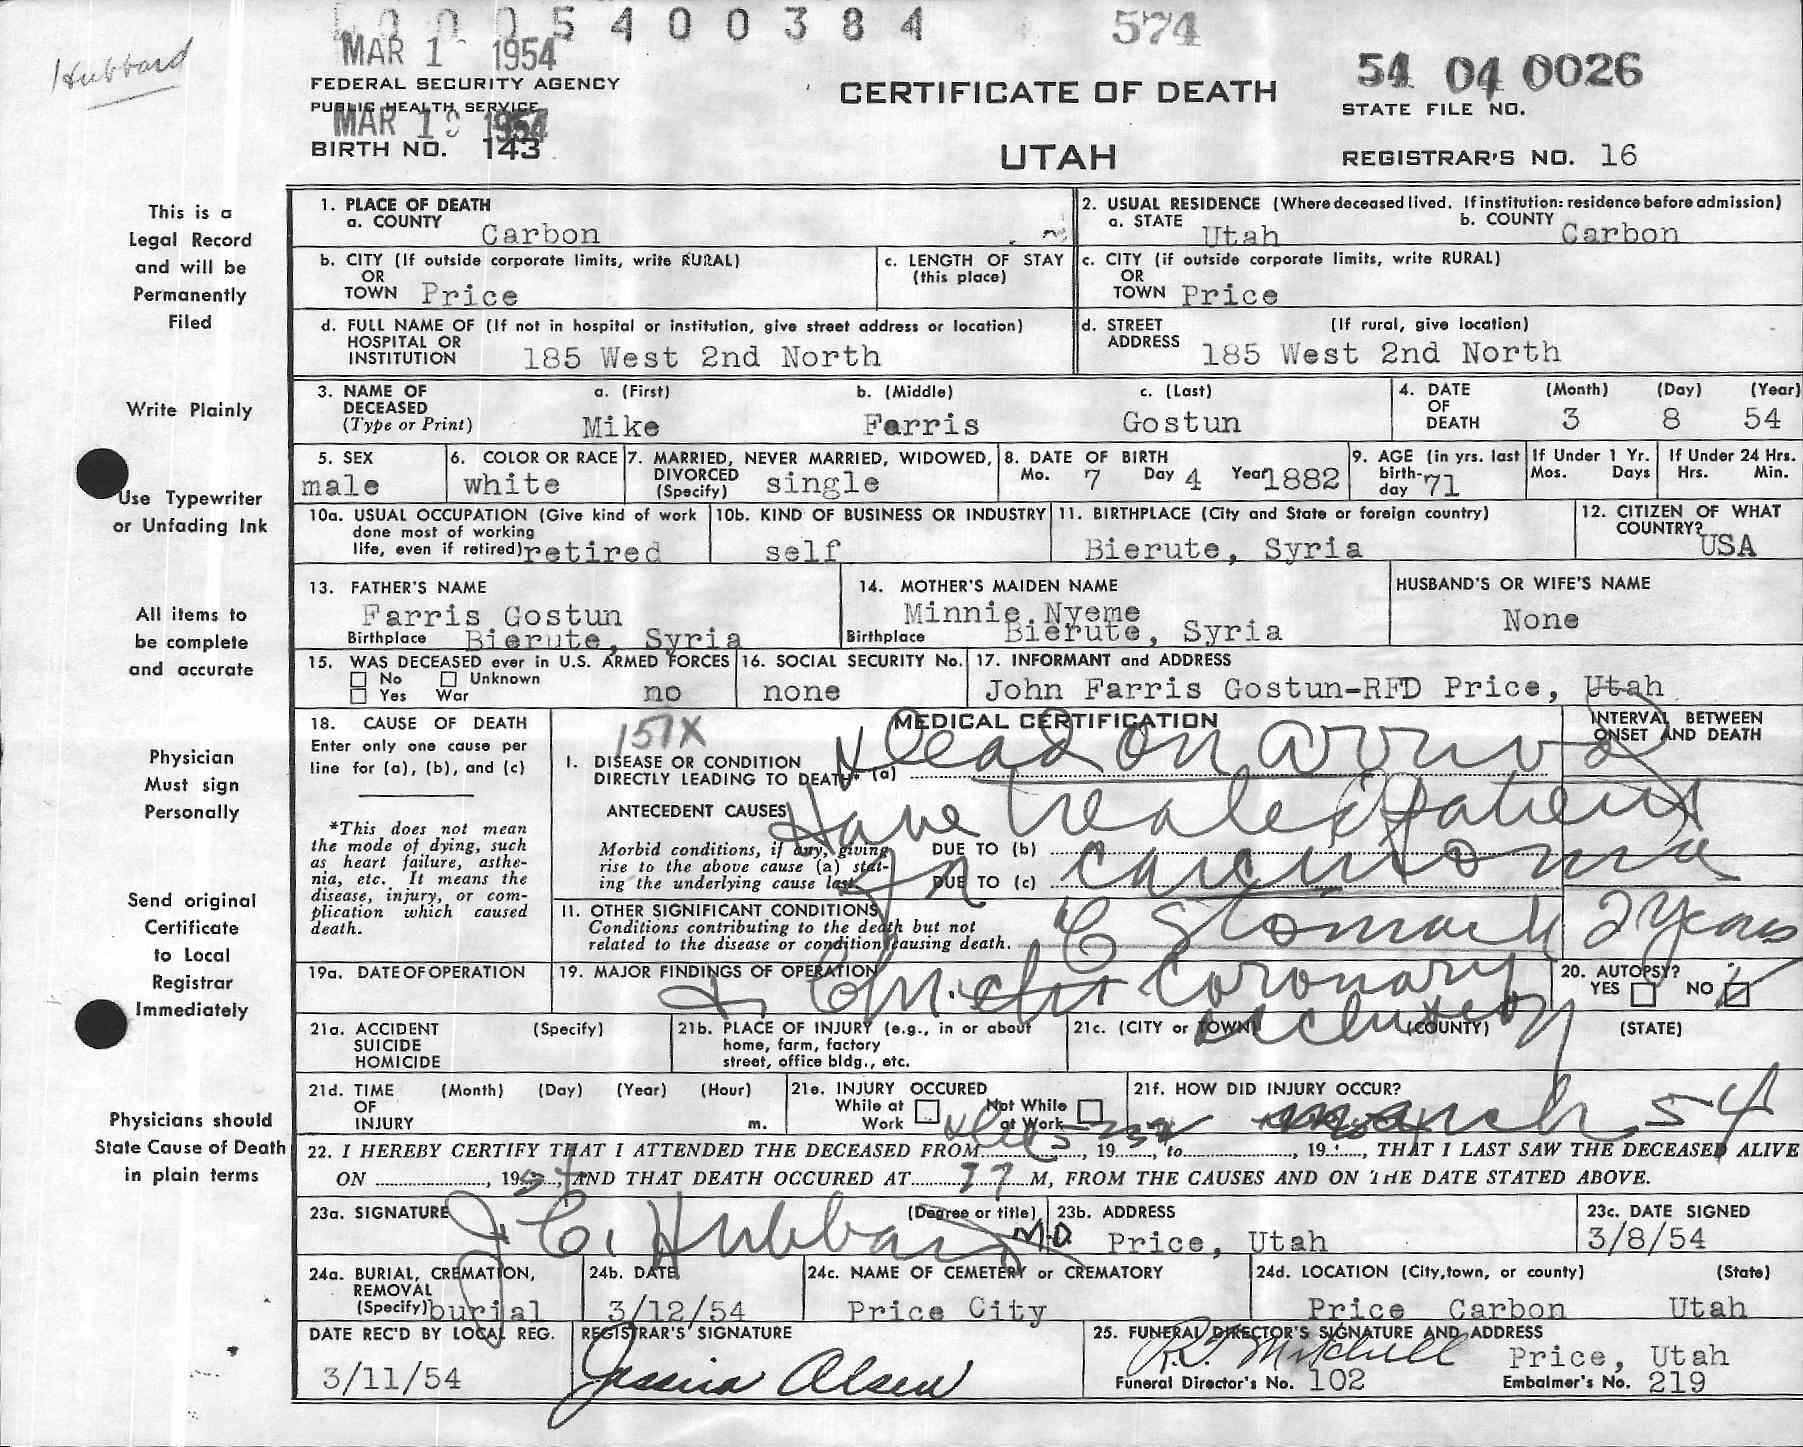 Hubbard
0005400384 574
MAR 1 1954
FEDERAL SECURITY AGENCY
PUBLIC HEALTH SERVICE
MAR 1 1954
BIRTH NO. 143
CERTIFICATE OF DEATH
UTAH
54 04 0026
STATE FILE NO.
REGISTRAR'S NO. 16
This is a
Legal Record
and will be
Permanently
Filed
Write Plainly
Use Typewriter
or Unfading Ink
All items to
be complete
and accurate
Physician
Must sign
Personally
Send original
Certificate
to Local
Registrar
Immediately
Physicians should
State Cause of Death
in plain terms
1. PLACE OF DEATH
a. COUNTY Carbon
2. USUAL RESIDENCE (Where deceased lived. If institution: residence before admission)
a. STATE Utah b. COUNTY Carbon
b. CITY (If outside corporate limits, write RURAL)
OR
TOWN Price
c. LENGTH OF STAY
(this place)
c. CITY (if outside corporate limits, write RURAL)
OR
TOWN Price
d. FULL NAME OF (If not in hospital or institution, give street address or location)
HOSPITAL OR
INSTITUTION 185 West 2nd North
d. STREET (If rural, give location)
ADDRESS 185 West 2nd North
3. NAME OF a. (First) b. (Middle) c. (Last)
DECEASED
(Type or Print) Mike Farris Gostun
4. DATE (Month) (Day) (Year)
OF
DEATH 3 8 54
5. SEX
male
6. COLOR OR RACE
white
7. MARRIED, NEVER MARRIED, WIDOWED,
DIVORCED
(Specify) single
8. DATE OF BIRTH
Mo. 7 Day 4 Year 1882
9. AGE (in yrs. last
birth-
day 71
If Under 1 Yr.
Mos. Days
If Under 24 Hrs.
Hrs. Min.
10a. USUAL OCCUPATION (Give kind of work
done most of working
life, even if retired) retired
10b. KIND OF BUSINESS OR INDUSTRY
self
11. BIRTHPLACE (City and State or foreign country)
Bierute, Syria
12. CITIZEN OF WHAT
COUNTRY?
USA
13. FATHER'S NAME
Farris Gostun
Birthplace Bierute, Syria
14. MOTHER'S MAIDEN NAME
Minnie Nyeme
Birthplace Bierute, Syria
HUSBAND'S OR WIFE'S NAME
None
15. WAS DECEASED ever in U.S. ARMED FORCES
No Unknown
Yes War no
16. SOCIAL SECURITY No.
none
17. INFORMANT and ADDRESS
John Farris Gostun-RFD Price, Utah
18. CAUSE OF DEATH
Enter only one cause per
line for (a), (b), and (c)
*This does not mean
the mode of dying, such
as heart failure, asthe-
nia, etc. It means the
disease, injury, or com-
plication which caused
death.
151X
MEDICAL CERTIFICATION
INTERVAL BETWEEN
ONSET AND DEATH
I. DISEASE OR CONDITION
DIRECTLY LEADING TO DEATH* (a) Dead on arrival
ANTECEDENT CAUSES Have treated patient
Morbid conditions, if any, giving
rise to the above cause (a) stat-
ing the underlying cause last.
DUE TO (b)
DUE TO (c) carcinoma
II. OTHER SIGNIFICANT CONDITIONS
Conditions contributing to the death but not
related to the disease or condition causing death.
Stomach 2 Years
19a. DATE OF OPERATION
19. MAJOR FINDINGS OF OPERATION
coronary
occlusion
20. AUTOPSY?
YES NO
21a. ACCIDENT (Specify)
SUICIDE
HOMICIDE
21b. PLACE OF INJURY (e.g., in or about
home, farm, factory
street, office bldg., etc.
21c. (CITY or TOWN) (COUNTY) (STATE)
21d. TIME (Month) (Day) (Year) (Hour)
OF
INJURY m.
21e. INJURY OCCURED
While at Work
Not While at Work
21f. HOW DID INJURY OCCUR?
march 54
22. I HEREBY CERTIFY THAT I ATTENDED THE DECEASED FROM , 19 , to , 19 , THAT I LAST SAW THE DECEASED ALIVE
ON , 1954, AND THAT DEATH OCCURED AT M, FROM THE CAUSES AND ON THE DATE STATED ABOVE.
23a. SIGNATURE (Degree or title)
J. C. Hubbard M.D.
23b. ADDRESS
Price, Utah
23c. DATE SIGNED
3/8/54
24a. BURIAL, CREMATION,
REMOVAL
(Specify) burial
24b. DATE
3/12/54
24c. NAME OF CEMETERY or CREMATORY
Price City
24d. LOCATION (City, town, or county) (State)
Price Carbon Utah
DATE REC'D BY LOCAL REG.
3/11/54
REGISTRAR'S SIGNATURE
Jessica Olsen
25. FUNERAL DIRECTOR'S SIGNATURE AND ADDRESS
Mitchell Price, Utah
Funeral Director's No. 102 Embalmer's No. 219